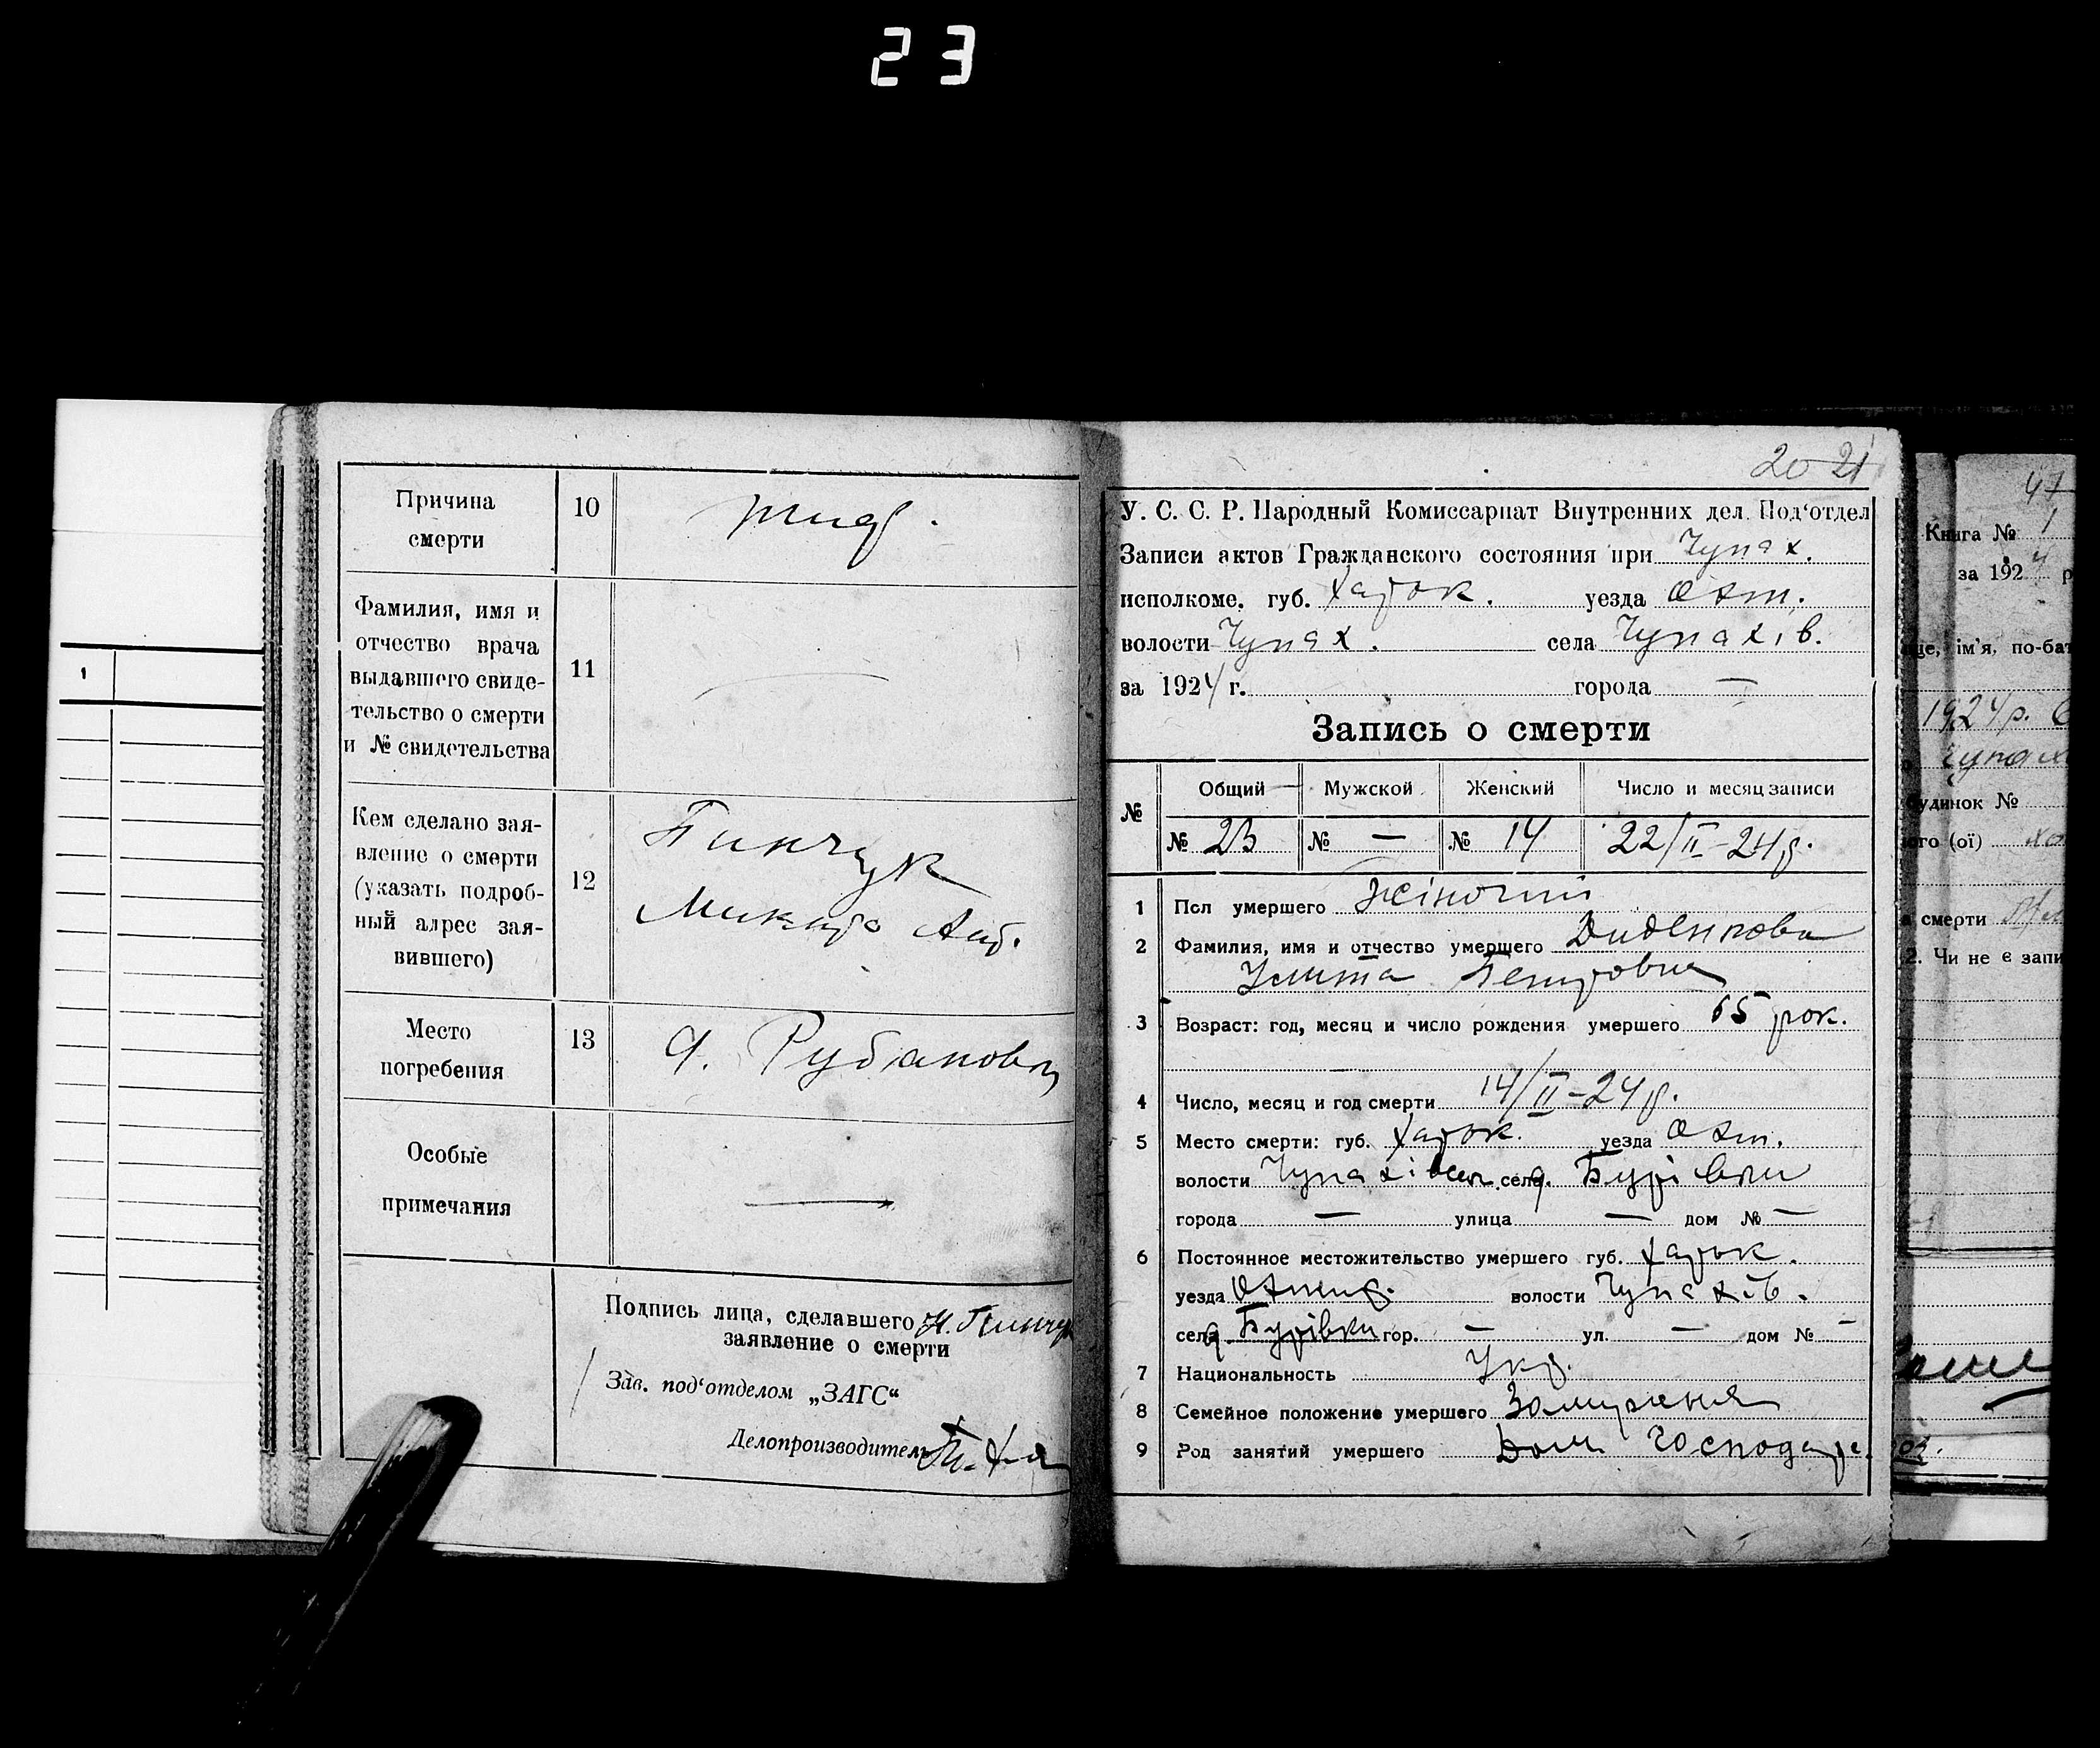 23
1
Причина
смерти
10
тиф.
Фамилия, имя и
отчество врача
выдавшего свиде-
тельство о смерти
и № свидетельства
11
—
Кем сделано зая-
вление о смерти
(указать подроб-
ный адрес зая-
вившего)
12
Пинчук
Микита
Место
погребения
13
Особые
примечания
—
Подпись лица, сделавшего Н. Пинчук
заявление о смерти
Зав. под‘отделом „ЗАГС“
Делопроизводитель
20 21
У. С. С. Р. Народный Комиссариат Внутренних дел. Под‘отдел
Записи актов Гражданского состояния при Чупах.
исполкоме. губ. Харьк. уезда Охт.
волости Чупах. села Чупахів.
за 1924 г. города —
Запись о смерти
№ Общий Мужской Женский Число и месяц записи
№ 23 № — № 14 22/II-24р.
1 Пол умершего жіночий
2 Фамилия, имя и отчество умершего Диденкова
Улита Петровна
3 Возраст: год, месяц и число рождения умершего 65 рок.
4 Число, месяц и год смерти 14/II-24р.
5 Место смерти: губ. Харьк. уезда Охт.
волости села Бурівки
города — улица — дом № —
6 Постоянное местожительство умершего губ. Харьк.
уезда Охтир. волости Чупахів.
села Бурівки гор. — ул. — дом № —
7 Национальность Укр.
8 Семейное положение умершего Замужняя
9 Род занятий умершего Дом. господар.
47
Книга № 1
за 1924 р
ім'я, по-бат
1924р.
будинок №
ого (ої)
смерти
2. Чи не є запи